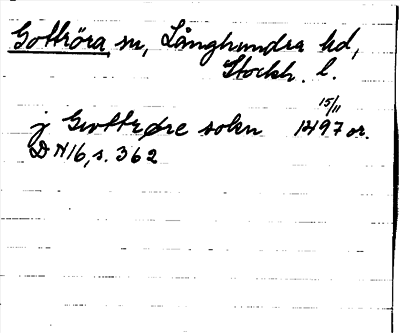 Gottröra sn, Långhundra hd,
Stockh. l.
15/11
j Gwttrøre sokn 1497 or.
DN 16, s. 362